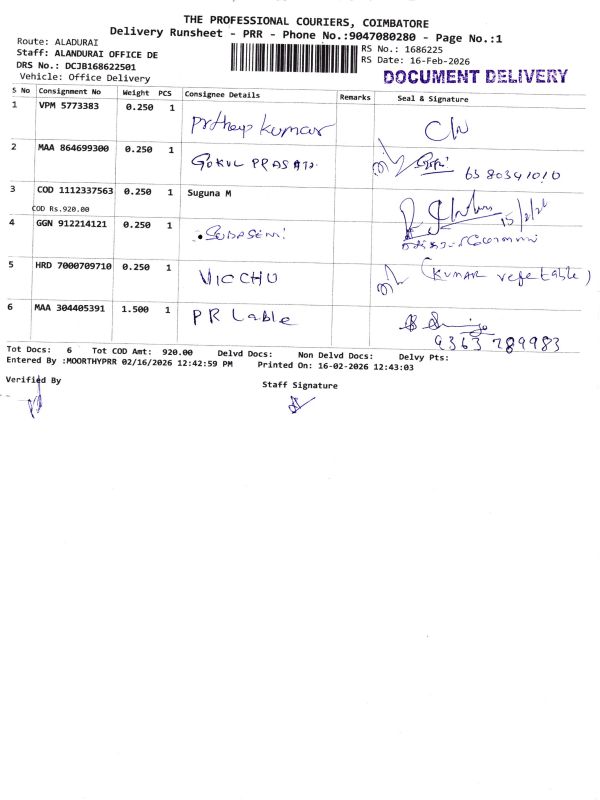 THE PROFESSIONAL COURIERS, COIMBATORE
Delivery Runsheet - PRR - Phone No.:9047080280 - Page No.:1
Route: ALADURAI
Staff: ALANDURAI OFFICE DE
DRS No.: DCJB168622501
Vehicle: Office Delivery
RS No.: 1686225
RS Date: 16-Feb-2026
DOCUMENT DELIVERY
S No Consignment No Weight PCS Consignee Details Remarks Seal & Signature
1 VPM 5773383 0.250 1 Prthep kumar
2 MAA 864699300 0.250 1 GOKUL PRASATH 6580341010
3 COD 1112337563 0.250 1 Suguna M 15/2/26
COD Rs.920.00
4 GGN 912214121 0.250 1
5 HRD 7000709710 0.250 1 VICCHU (KUMAR vegetable)
6 MAA 304405391 1.500 1 PR Lable
9363 789983
Tot Docs: 6 Tot COD Amt: 920.00 Delvd Docs: Non Delvd Docs: Delvy Pts:
Entered By :MOORTHYPRR 02/16/2026 12:42:59 PM Printed On: 16-02-2026 12:43:03
Verified By
Staff Signature